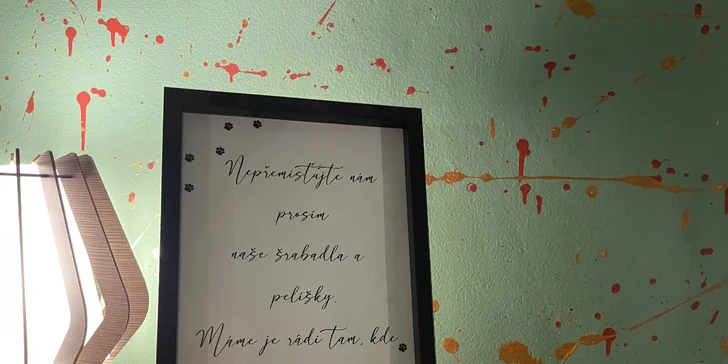 Nepřemisťujte nám
prosím
naše šrabadla a
pelíšky.
Máme je rádi tam, kde